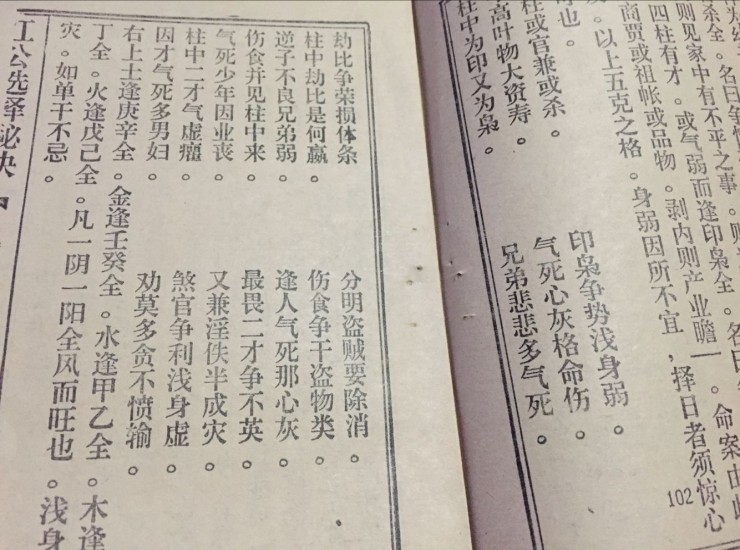 杀全。名曰争
则见家中有不平之事。
四柱有才。或气弱而逢印枭全。名曰
商贾或祖帐或品物。剥内则产业瞻一。命案由此
。以上五克之格。身弱因所不宜,择日者须惊心
也。
柱或官兼或杀。 印枭争势浅身弱。
高叶物大资寿。 气死心灰格命伤。
柱中为印又为枭。 兄弟悲悲多气死。
102
劫比争荣损体条 分明盗贼要除消。
柱中劫比是何赢。 伤食争干盗物类。
逆子不良兄弟弱。 逢人气死那心灰。
伤食并见柱中来。 最畏二才争不英。
气死少年因业丧。 又兼淫佚半成灾。
柱中二才气虚癯。 煞官争利浅身虚。
因才气死多男妇。 劝莫多贪不愤输。
右上土逢庚辛全。金逢壬癸全。水逢甲乙全。木逢
丁全。火逢戊己全。凡一阴一阳全风而旺也。浅身
灾。如单干不忌。
江公选择秘诀